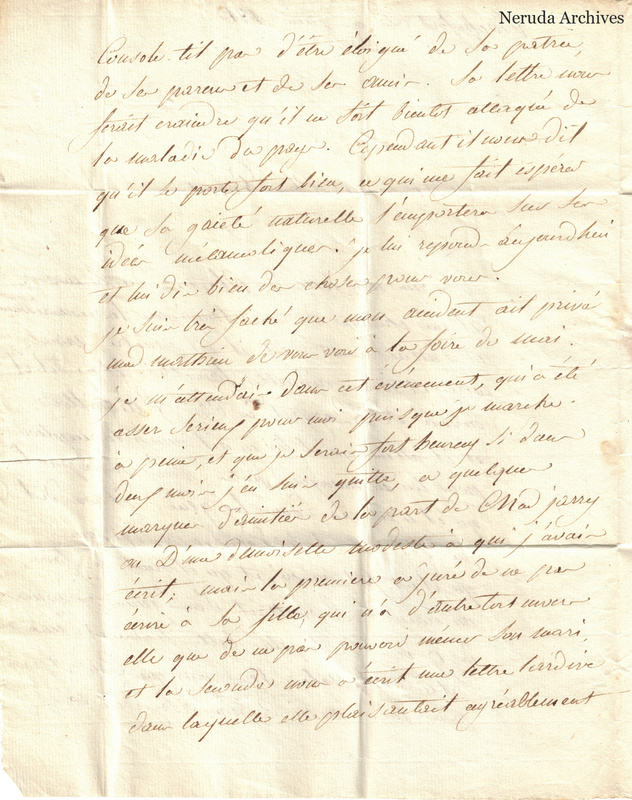 Neruda Archives
Console-t-il pas d'être éloigné de sa patrie,
de ses parens et de ses amis. Sa lettre nous
ferait craindre qu'il ne fut bientot attaqué de
la maladie du pays. Cependant il nous dit
qu'il se porte fort bien, ce qui me fait espérer
que sa gaieté naturelle l'emportera sur ses
idées mélancoliques. je lui reponds aujourdhui
et lui dis bien des choses pour vous.
je suis très faché que mon accident ait privé
mad. mathieu de vous voir à la foire de mai.
je m'attendais dans cet événement, qui a été
assez serieux pour moi puisque je marche
à peine, et que je serais fort heureux si dans
deux mois j'en suis quitte, a quelques
marques d'amitié de la part de Mad jarry
ou D'une demoiselle modeste à qui j'avais
écrit; mais la premiere a juré de ne pas
écrire à sa fille, qui n'a d'autre tort envers
elle que de ne pas pouvoir mener son mari,
et la seconde nous a écrit une lettre tardive
dans laquelle elle plaisantait agréablement